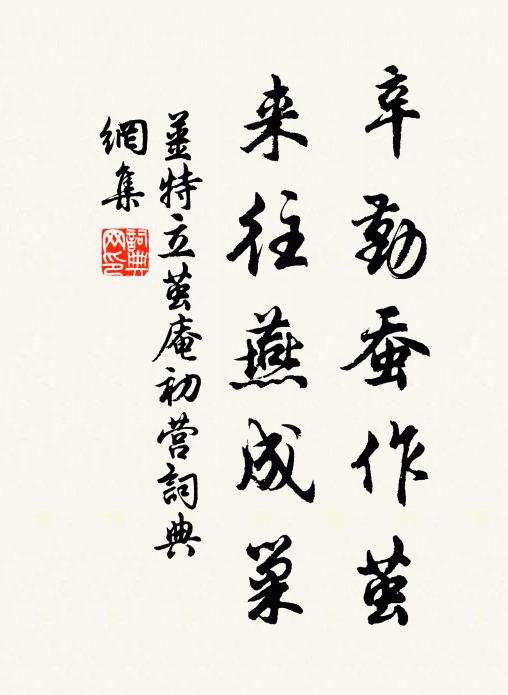 辛勤蚕作茧
来往燕成巢
姜特立茧庵初营詞典
網集
詞典网印